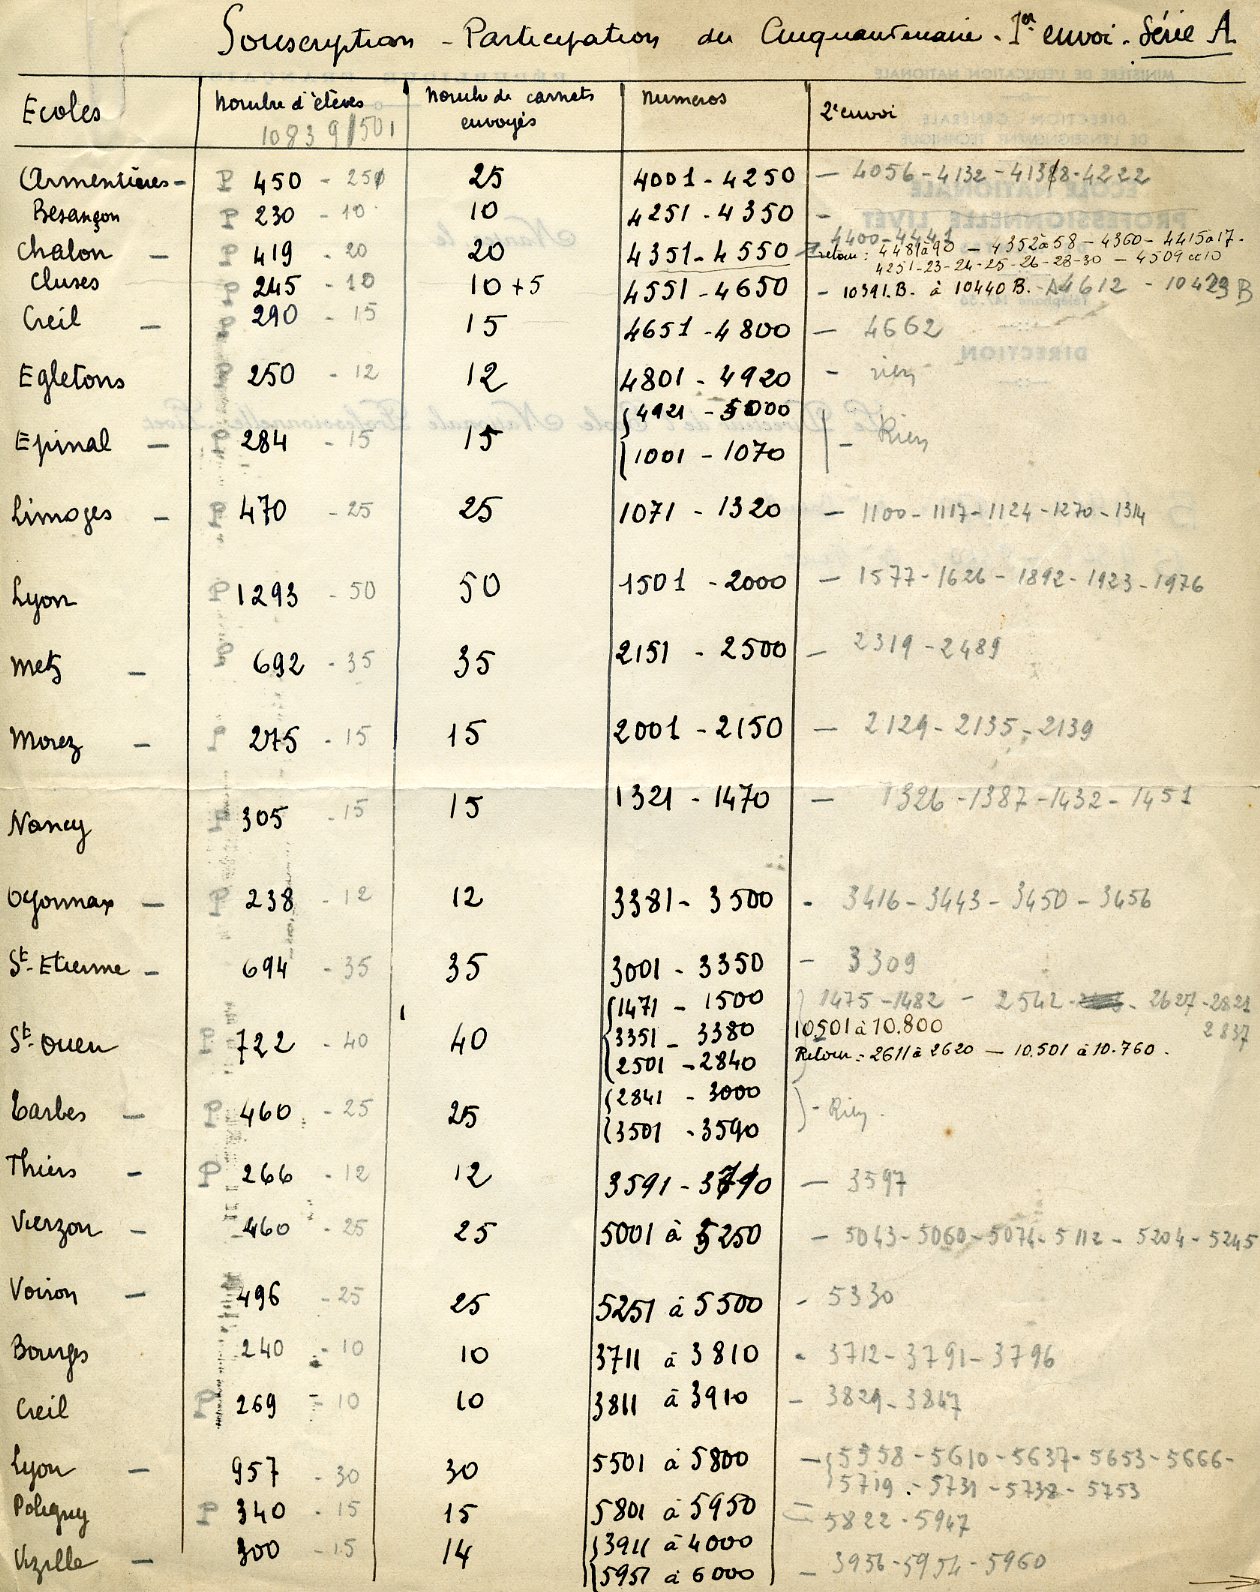 Souscription - Participation du Cinquantenaire - 1er envoi - Série A
Ecoles Nombre d'élèves Nombre de carnets envoyés Numéros 2e envoi
10839/501
Armentières - P 450 - 25 25 4001 - 4250 - 4056 - 4132 - 4138 - 4222
Besançon P 230 - 10 10 4251 - 4350 -
Chalon - P 419 - 20 20 4351 - 4550 4400 - 4441
retour : 4481 à 90 - 4352 à 58 - 4360 - 4415 à 17 -
4251 - 23 - 24 - 25 - 26 - 28 - 30 - 4509 et 10
Cluses 245 - 10 10 + 5 4551 - 4650 - 10391.B. à 10440 B. - A4612 - 10423 B
Creil - 290 - 15 15 4651 - 4800 - 4662
Egletons 250 - 12 12 4801 - 4920 - rien
Epinal - 284 - 15 15 4921 - 5000 - Rien
1001 - 1070
Limoges - P 470 - 25 25 1071 - 1320 - 1100 - 1117 - 1124 - 1270 - 1314
Lyon P 1293 - 50 50 1501 - 2000 - 1577 - 1626 - 1892 - 1923 - 1976
Metz - P 692 - 35 35 2151 - 2500 - 2319 - 2489
Morez - P 275 - 15 15 2001 - 2150 - 2129 - 2135 - 2139
Nancy P 305 - 15 15 1321 - 1470 - 1326 - 1387 - 1432 - 1451
Oyonnax - P 238 - 12 12 3381 - 3500 - 3416 - 3443 - 3450 - 3456
St. Etienne - 694 - 35 35 3001 - 3350 - 3309
St. Ouen P 722 - 40 40 1471 - 1500 1475 - 1482 - 2542 - 2627 - 2821
3351 - 3380 10.501 à 10.800 2837
2501 - 2840 Retour : 2611 à 2620 - 10.501 à 10.760.
Tarbes - P 460 - 25 25 2841 - 3000 - Rien
3501 - 3590
Thiers - P 266 - 12 12 3591 - 3710 - 3597
Vierzon - 460 - 25 25 5001 à 5250 - 5043 - 5060 - 5074 - 5112 - 5204 - 5245
Voiron - 496 - 25 25 5251 à 5500 - 5330
Bourges 240 - 10 10 3711 à 3810 - 3712 - 3791 - 3796
Creil P 269 - 10 10 3811 à 3910 - 3829 - 3847
Lyon - 957 - 30 30 5501 à 5800 - 5558 - 5610 - 5637 - 5653 - 5666 -
5719 - 5731 - 5732 - 5753
Poligny P 340 - 15 15 5801 à 5950 - 5822 - 5947
Vizille - 300 - 15 14 3911 à 4000
5951 à 6000 - 3936 - 5954 - 5960